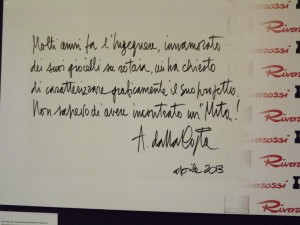 Molti anni fa l'Ingegnere, innamorato
dei suoi gioielli su rotaia, mi ha chiesto
di caratterizzare graficamente il suo progetto.
Non sapevo di avere incontrato un "Mito"!
A. dalla Costa
aprile 2013
Rivarossi
Rivarossi
Rivarossi
Rivarossi